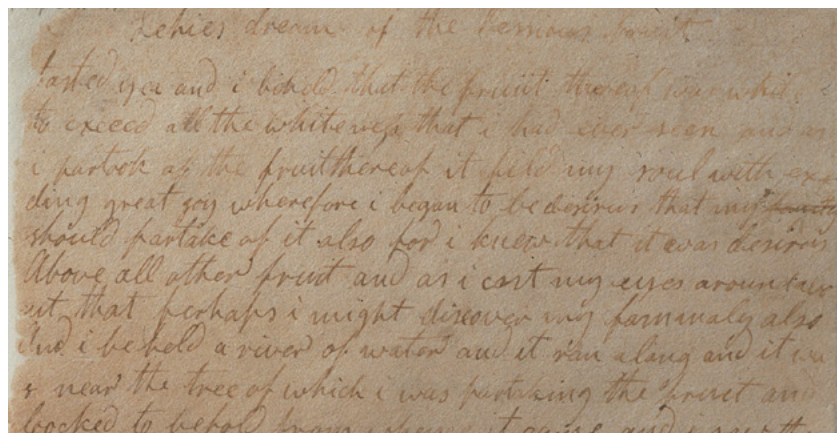 Lehies dream of the
tasted yea and i behold that the fruiit thereof was whit
to exceed all the whiteness that i had ever seen and as
i partook of the fruit thereof it fild my soul with exe
ding great goy wherefore i began to be desirus that my
should partake of it also for i knew that it was desirus
Above all other fruit and as i cast my eyes
ut that perhaps i might discover my also
And i beheld a river of water and it ran along and it wa
s near the tree of which i was partaking the fruit and
loocked to behold from it came and i